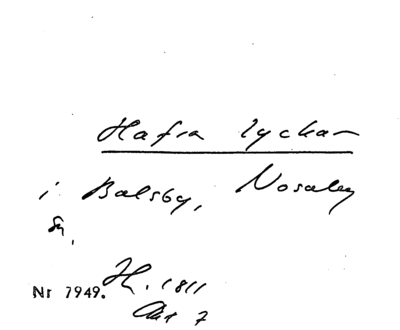 Hafra lyckan
i Balsby, Nosaby
Sn,
Nr 7949. H. 1811
Akt 7